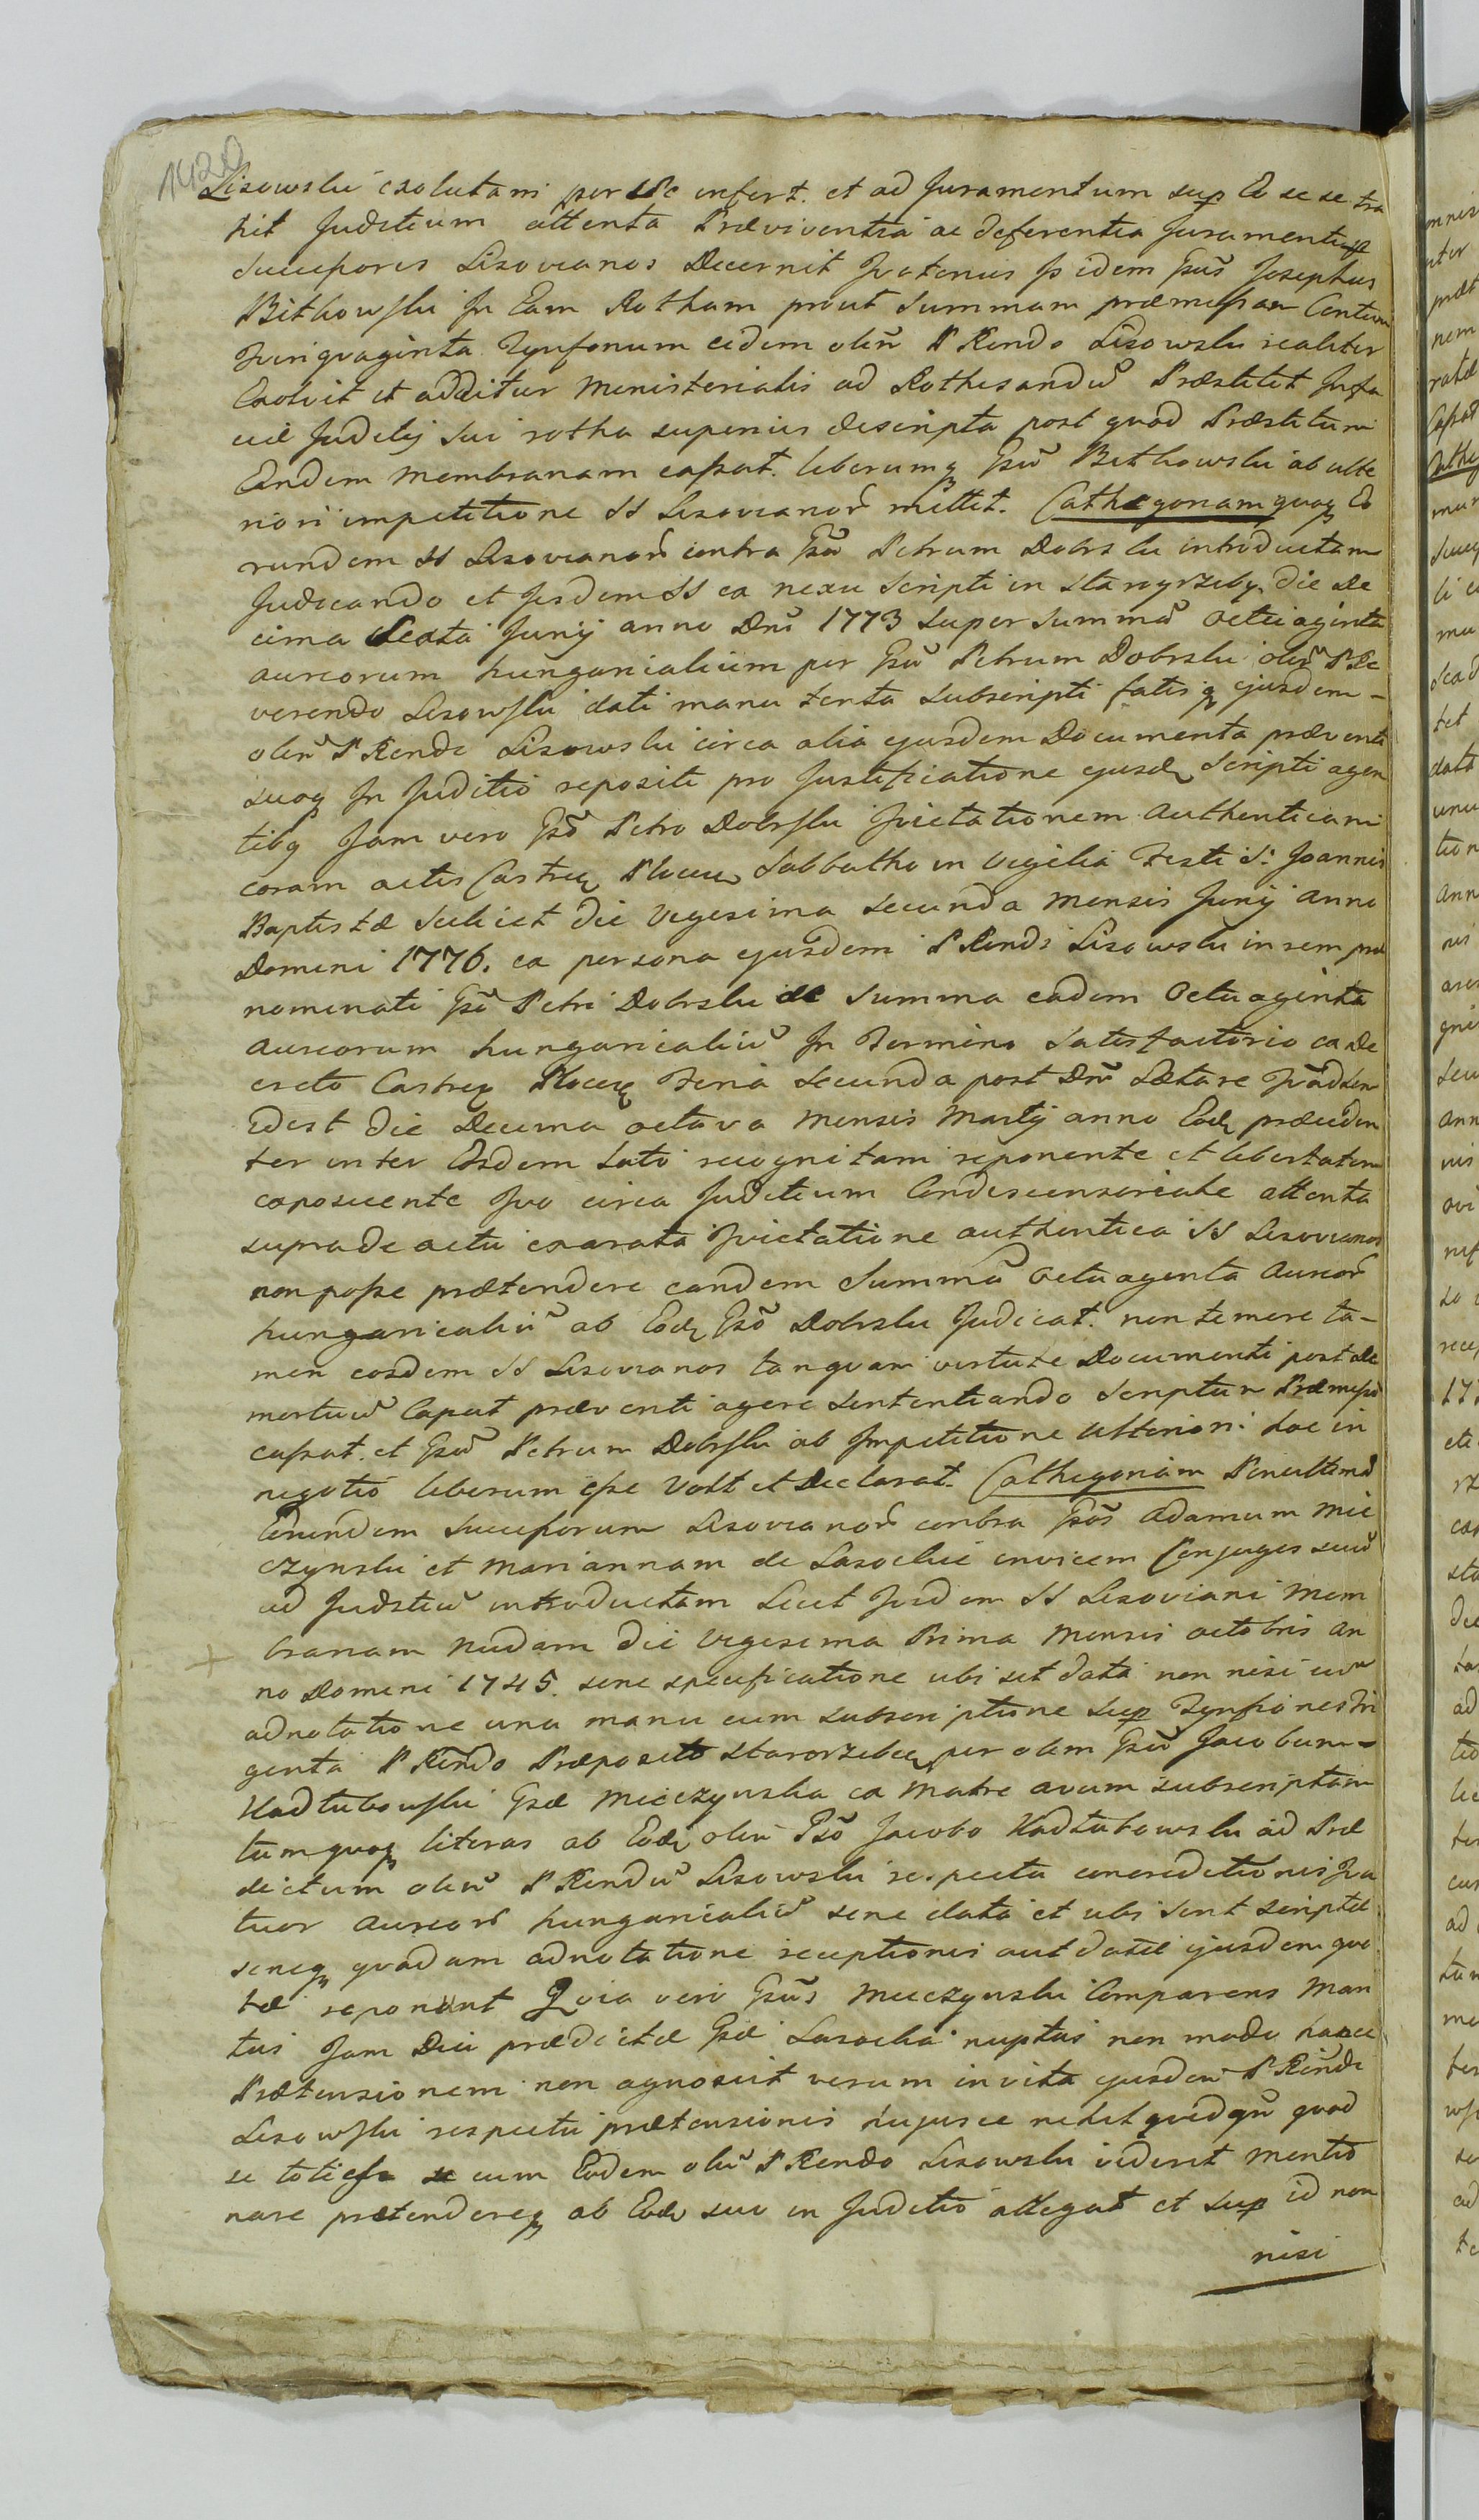 1420
Lisowski exolutam per se infert. et ad Juramentum sup Eo se se tra
hit Juditium attenta Præviventia ac deferentia Juramenti
Successores Lisovianos Decernit Quatenus Jsidem Gsus Josephus
Bitkowski In Eam Rotham prout Summam præmissam Centum
Quinquaginta Tynfonum eidem olim P Rendo Lisowski realiter
Exolvit et additur Ministerialis ad Rothisandū Præstitit In fa
cie Juditij Sui rotha superius descripta post quod Præstitum
Eandem Membranam cassat. liberumq Gsū Bitkowski ab ulte
riori impetitione SS Lisovianor mittit. Cathegoriam quoq Eo
rundem SS Lisovianor contra Gsū Petrum Dobrski introductam
Judicando et Jisdem SS ex nexu Scripti in Starogrzeby die De
cima Sexta Junij anno Dni 1773 super Summā Octuaginta
aureorum hungaricalium per Gsū Petrum Dobrski olim P Re
verendo Lisowski dati manu tenta subscripti fatisq ejusdem-
olim P Rende Lisowski circa alia ejusdem Documenta præventi
suoq In Juditio repositi pro Justificatione ejusd Scripti agen
tibq Jam vero Gsō Petro Dobrski Quietationem Authenticam
coram actis Castren Plocen Sabbatho in Vigilia Festi S: Joannis
Baptistæ Scilicet die Vigesima Secunda Mensis Junij Anno
Domini 1776. ex persona ejusdem P Rendi Lisowski in rem præ
nominati Gsi Petri Dobrski de Summa eadem Octuaginta
Aureorum hungaricaliū In Termino Satisfactorio ex De
creto Castren Plocen Feria Secunda post Dnī Lætare Quadsem
idest die Decima octava Mensis Martij anno Eod præceden
ter inter Eosdem Lato recognitam reponente et libertatem
exposcente Quo circa Juditium Condescensoriale attenta
suprade actu exarata Quietatione authentica SS Lisovianos
non posse prætendere eandem Summā Octuaginta Aureor
hungaricaliū ab Eod Gsō Dobrski Judicat. non temere ta-
men eosdem SS Lisovianos tanquam virtute Documenti post De
mortuū Caput præventi agere Sententiando Scriptum Præmissū
cassat. et Gsū Petrum Dobrski ab Impetitione Ulteriori hoc in
negotio liberum esse Vult et Declarat. Cathegoriam Penultimā
Eorundem Successorum Lisovianor contra Gsos Adamum Mie
czynski et Mariannam de Lasockie invicem Conjuges suū
ad Juditiū introductam Licet Quidem SS Lisoviani Mem
branam Nudam die Vigesima Prima Mensis octobris An
no Domini 1745. sine specificatione ubi sit data non nisi cum
adnotatione una manu cum subscriptione Sup Tynfiones Tri
ginta P Rendo Præposito Starorzebien per olim Gsū Jacobum-
Nadtubowski Gsæ Mieczynska ex Matre avum subscriptam
tum quoq literas ab Eod olim Gsō Jacobo Nadtubowski ad Præ
dictum olim P Rendū Lisowski respectu concreditionis Qua
tuor Aureor hungaricaliū sine data et ubi sint scriptæ
sineq quadam adnotatione receptionis aut datæ ejusdem quo
tæ reponunt Quia vero Gsūs Mieczynski Comparens Mari
tus Jam Dici prædictæ Gsæ Lasockia nuptus non modo hance
Prætensionem non agnoscit verum in vita ejusdem P Rendi
Lisowski respectu prætensionis hujusce nihil quidqm quod
se toties cum Eodem olim P Rendo Lisowski viderit mentio
nare prætendereq ab Eod suo in Juditio allegat et sup id non
nisi